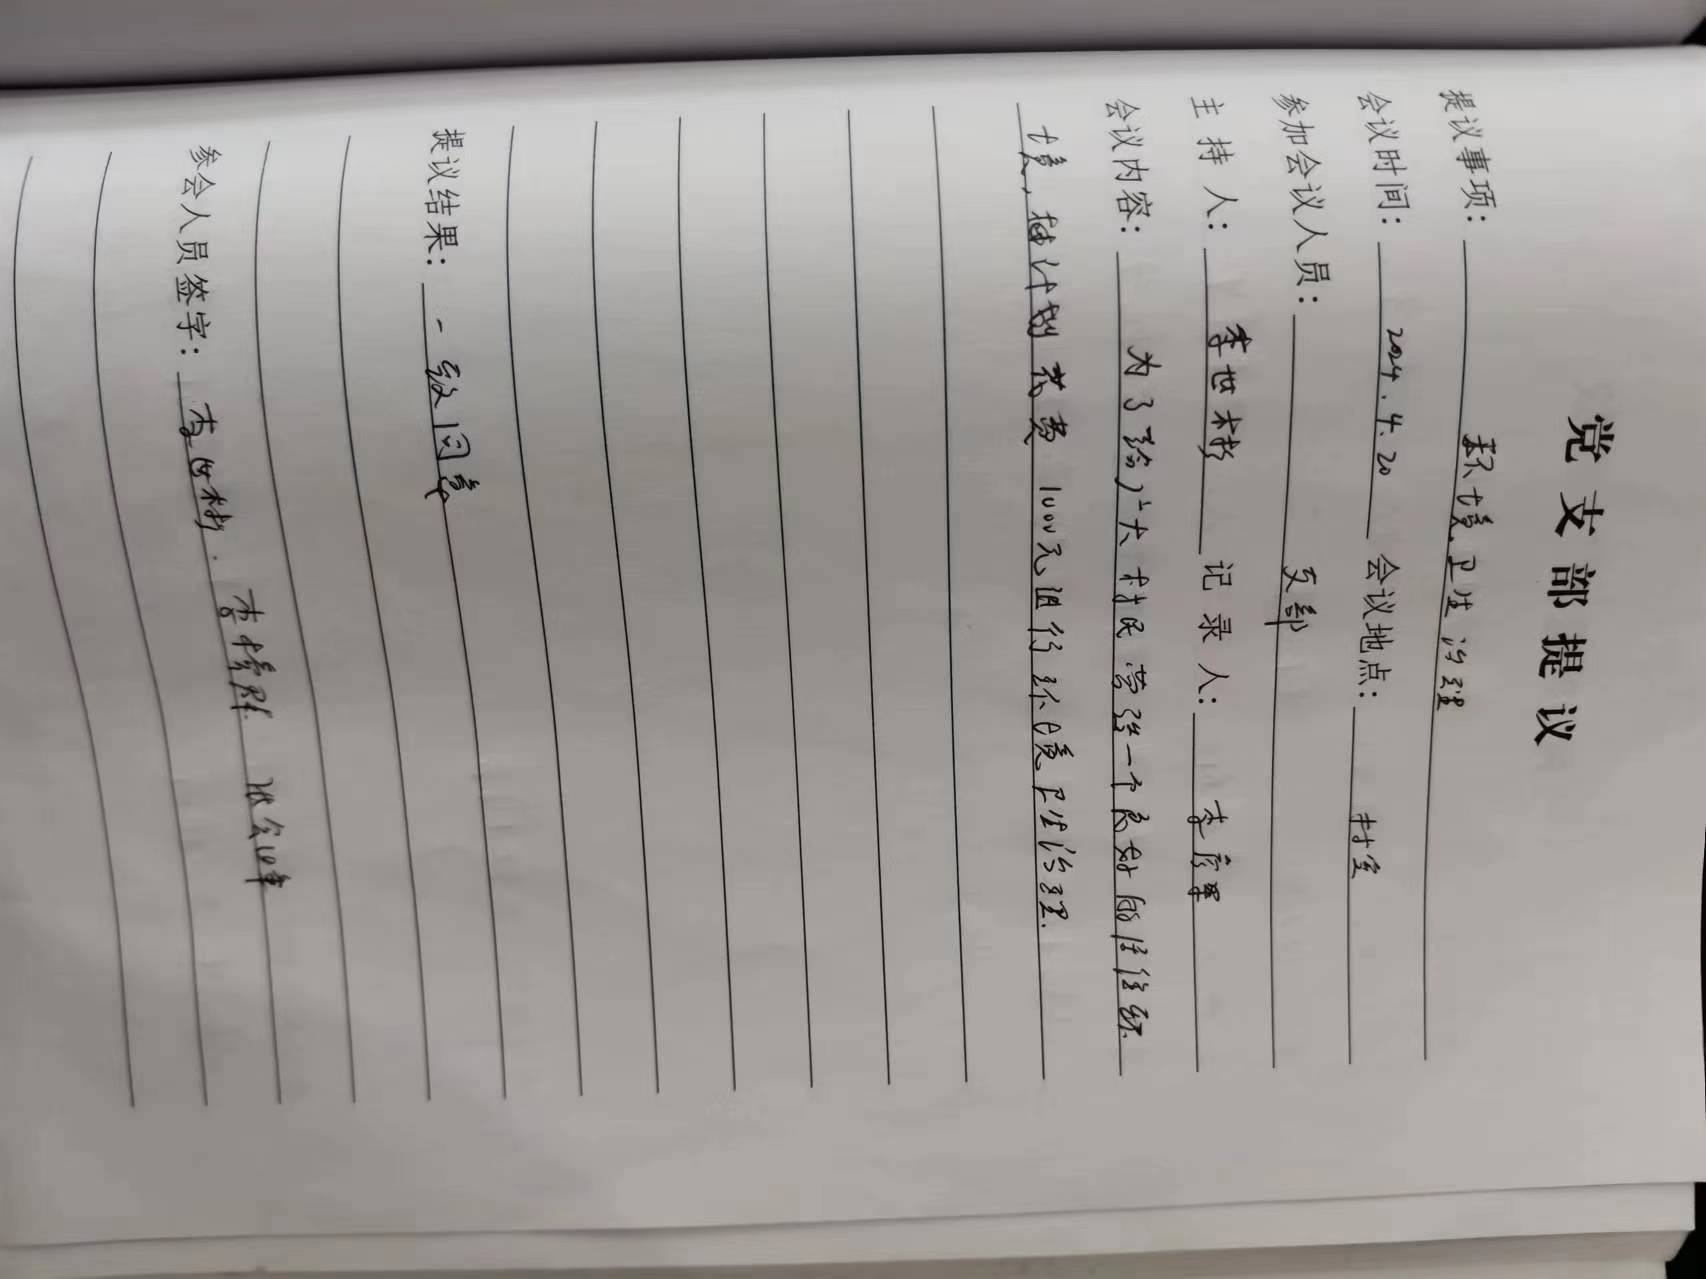 党支部提议
提议事项：环境卫生治理
会议时间：2024.4.20 会议地点：村室
参加会议人员：支部
主持人：李世彬 记录人：李彦军
会议内容：为了给广大村民营造一个良好的居住环
境，村计划花费1000元进行环境卫生治理.
提议结果：一致同意
参会人员签字：李世彬.